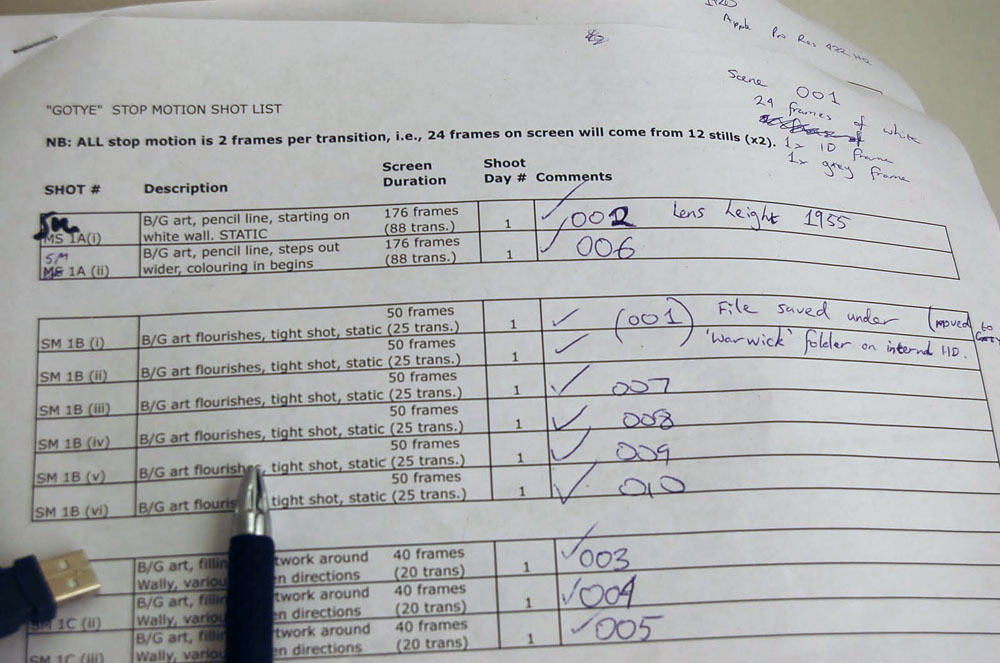 Apple Pro Res 422 HQ
Scene 001
24 frames of white
1x ID frame
1x grey frame
"GOTYE" STOP MOTION SHOT LIST
NB: ALL stop motion is 2 frames per transition, i.e., 24 frames on screen will come from 12 stills (x2).
SHOT # Description Screen Duration Shoot Day # Comments
SM
MS 1A(i) B/G art, pencil line, starting on 176 frames 1 002 Lens height 1955
white wall. STATIC (88 trans.)
SM
MS 1A (ii) B/G art, pencil line, steps out 176 frames 1 006
wider, colouring in begins (88 trans.)
50 frames
SM 1B (i) B/G art flourishes, tight shot, static (25 trans.) 1 (001) File saved under (moved to
50 frames
SM 1B (ii) B/G art flourishes, tight shot, static (25 trans.) 1 'Warwick' folder on internal HD.
50 frames
SM 1B (iii) B/G art flourishes, tight shot, static (25 trans.) 1 007
50 frames
SM 1B (iv) B/G art flourishes, tight shot, static (25 trans.) 1 008
50 frames
SM 1B (v) B/G art flourishes, tight shot, static (25 trans.) 1 009
50 frames
SM 1B (vi) B/G art flouris tight shot, static (25 trans.) 1 010
B/G art, fillin twork around 40 frames 1 003
Wally, variou en directions (20 trans)
SM 1C (ii) B/G art, fillin twork around 40 frames 1 004
Wally, variou en directions (20 trans)
SM 1C (iii) B/G art, fillin twork around 40 frames 1 005
Wally, variou en directions (20 trans)